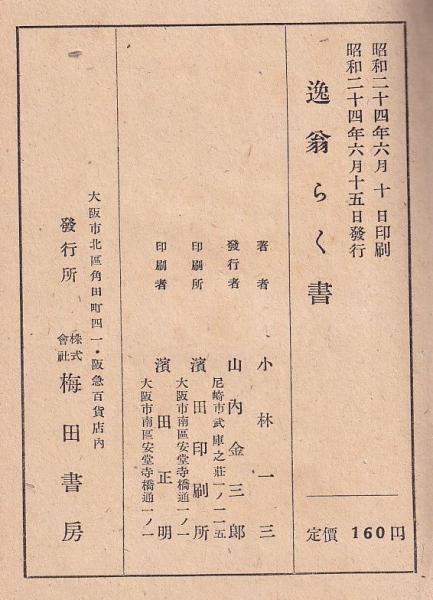 昭和二十四年六月十日印刷
昭和二十四年六月十五日發行
逸翁らく書
定價 160円
著者 小林一三
發行者 山內金三郎
尼崎市武庫之莊一ノ一五
印刷所 濱田印刷所
大阪市南區安堂寺橋通一ノ一
印刷者 濱田正明
大阪市南區安堂寺橋通一ノ一
大阪市北區角田町四一・阪急百貨店內
發行所 株式會社 梅田書房